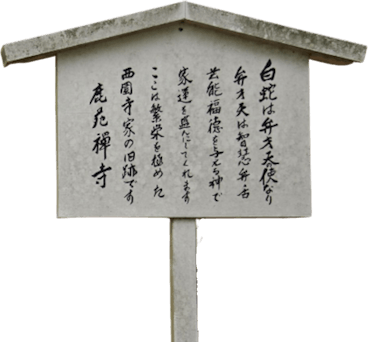 白蛇は弁才天使なり
弁才天は智慧弁舌
芸能福徳を与える神で
家運を盛んにしてくれます
ここは繁栄を極めた
西園寺家の旧跡です
鹿苑禅寺